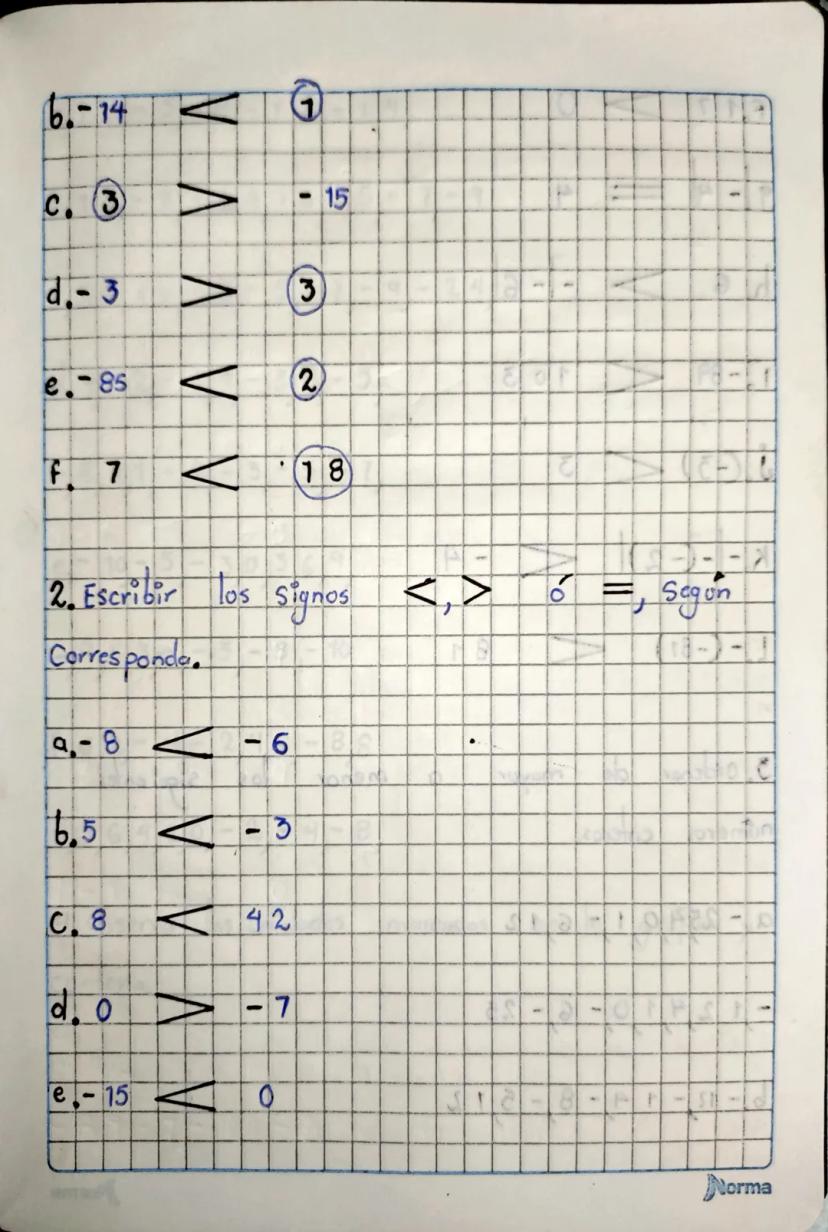 b. - 14 < 1
c. 3 > - 15
d. - 3 > 3
e. - 85 < 2
f. 7 < 18
2. Escribir los signos <, > ó =, según
Corresponda.
a. - 8 < - 6
b. 5 < - 3
c. 8 < 42
d. 0 > - 7
e. - 15 < 0
Norma